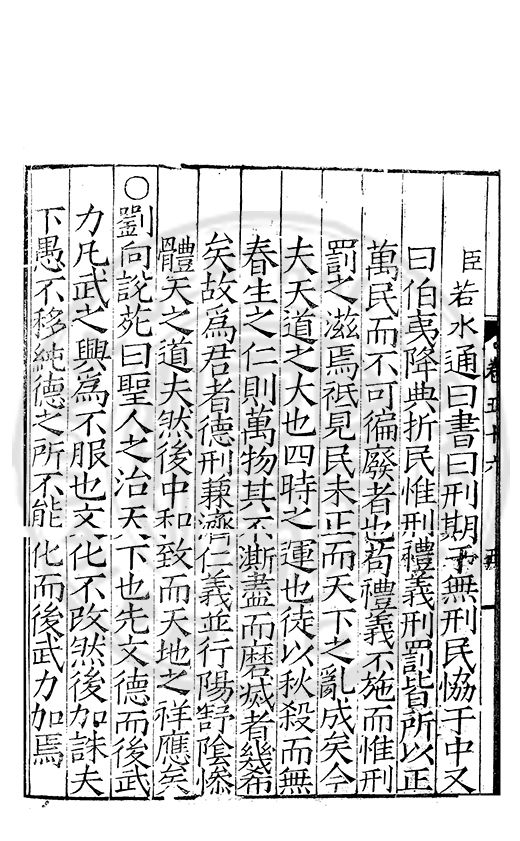 卷五十六
臣若水通曰書曰刑期于無刑民恊于中又
曰伯夷降典折民惟刑禮義刑罰皆所以正
萬民而不可徧廢者也苟禮義不施而惟刑
罰之滋焉祗見民未正而天下之亂成矣今
夫天道之大也四時之運也徒以秋殺而無
春生之仁則萬物其不澌盡而磨滅者幾希
矣故爲君者德刑蒹濟仁義並行陽舒陰慘
體天之道夫然後中和致而天地之祥應矣
○劉向說苑曰聖人之治天下也先文德而後武
力凡武之興爲不服也文化不改然後加誅夫
下愚不移純德之所不能化而後武力加焉